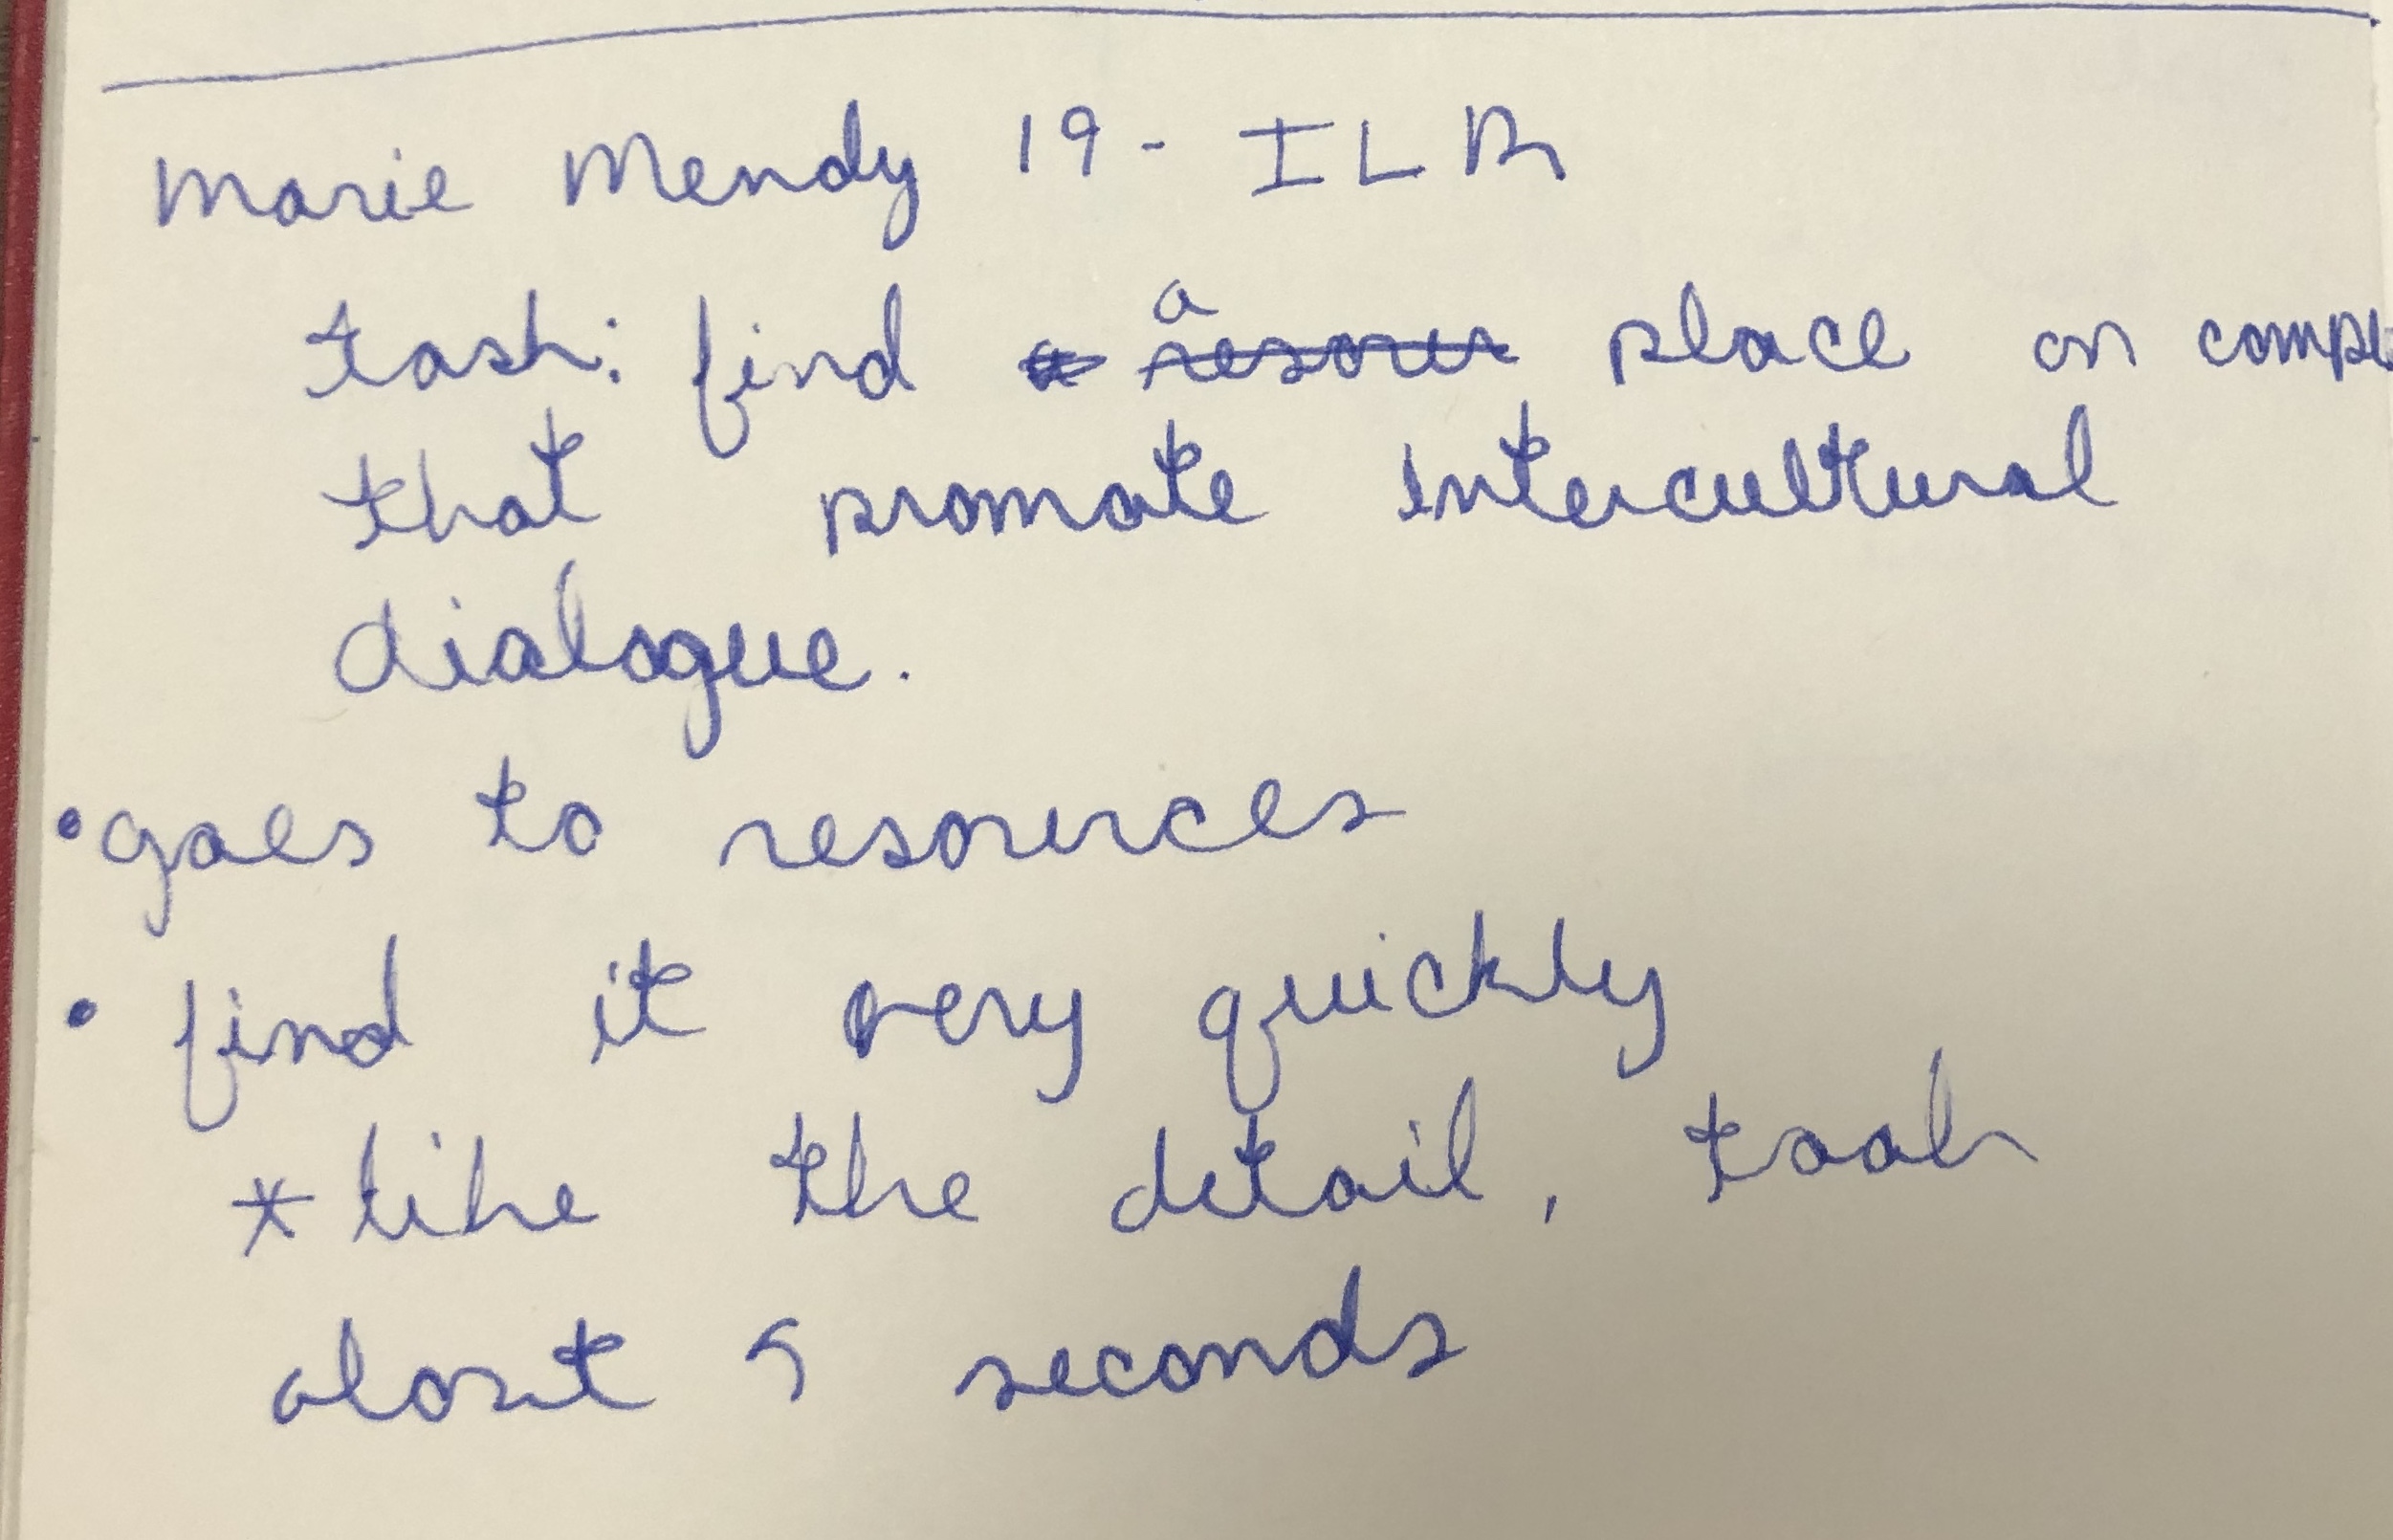 Marie Mendy 19 - ILR
task: find a place on
that promote intercultural
dialogue.
• goes to resources
• find it very quickly
* like the detail, took
about 5 seconds